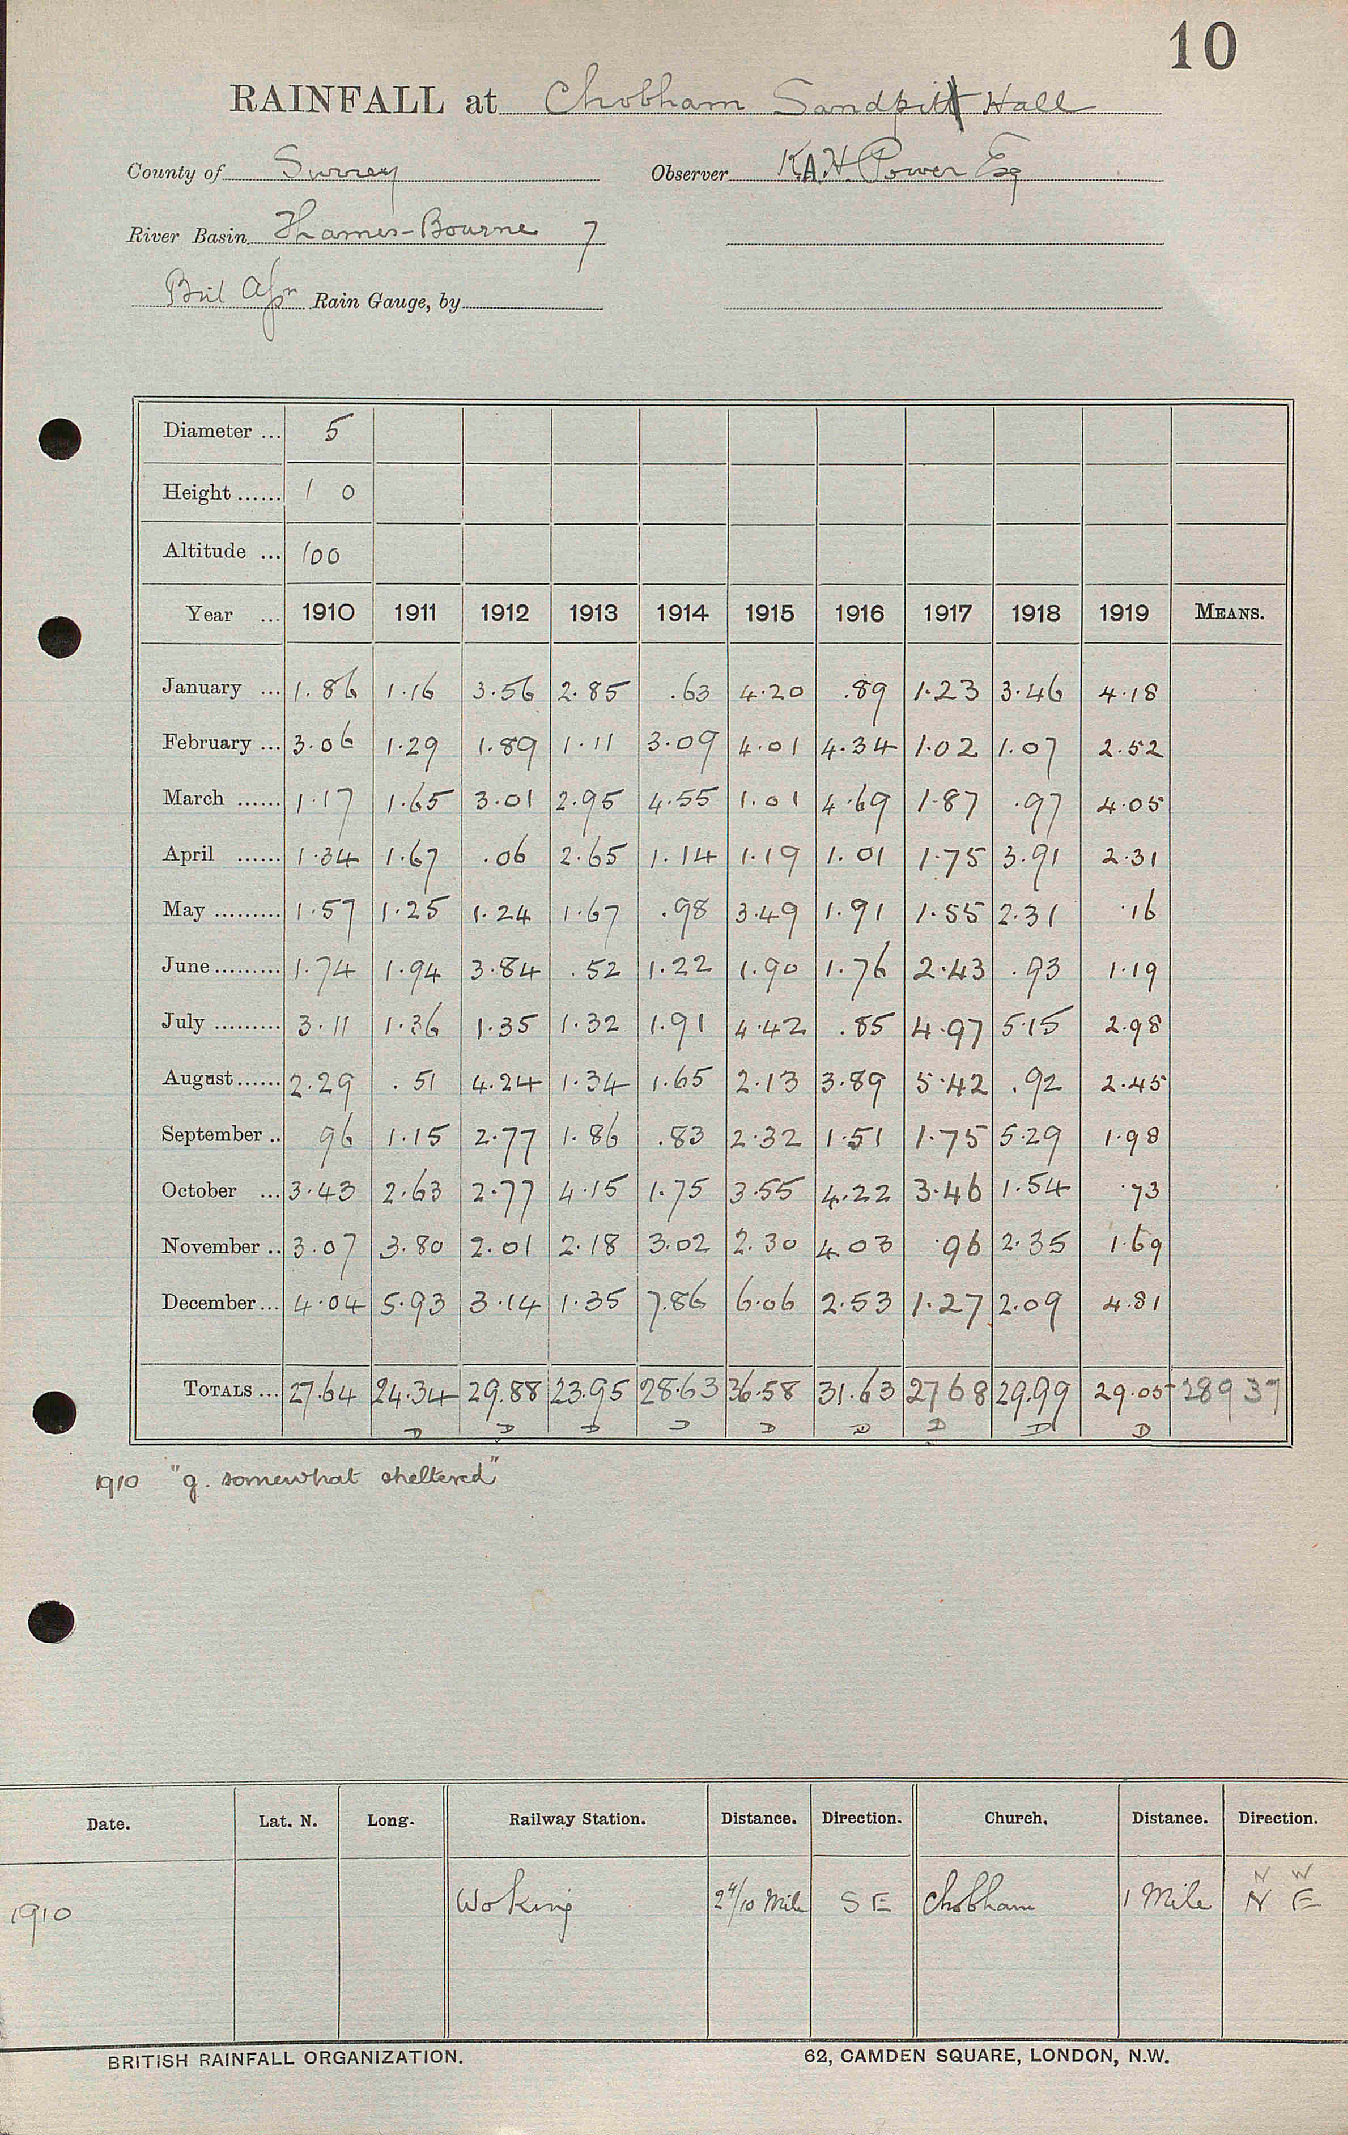 10
RAINFALL at Chobham Sandpit Hall
County of Surrey Observer K.A.H. Power Esq
River Basin Thames-Bourne 7
Rain Gauge, by
Diameter ... 5
Height ...... 1 0
Altitude ... 100
Year ... 1910 1911 1912 1913 1914 1915 1916 1917 1918 1919 MEANS.
January ... 1.86 1.16 3.56 2.85 .63 4.20 .89 1.23 3.46 4.18
February ... 3.06 1.29 1.89 1.11 3.09 4.01 4.34 1.02 1.07 2.52
March ...... 1.17 1.65 3.01 2.95 4.55 1.01 4.69 1.87 .97 4.05
April ...... 1.34 1.67 .06 2.65 1.14 1.19 1.01 1.75 3.91 2.31
May ......... 1.57 1.25 1.24 1.67 .98 3.49 1.91 1.55 2.31 .16
June ......... 1.74 1.94 3.84 .52 1.22 1.90 1.76 2.43 .93 1.19
July ......... 3.11 1.36 1.35 1.32 1.91 4.42 .85 4.97 5.15 2.98
August ...... 2.29 .51 4.24 1.34 1.65 2.13 3.89 5.42 .92 2.45
September .. 96 1.15 2.77 1.86 .83 2.32 1.51 1.75 5.29 1.98
October ... 3.43 2.63 2.77 4.15 1.75 3.55 4.22 3.46 1.54 .73
November .. 3.07 3.80 2.01 2.18 3.02 2.30 4.03 .96 2.35 1.69
December ... 4.04 5.93 3.14 1.35 7.86 6.06 2.53 1.27 2.09 4.81
TOTALS ... 27.64 24.34 29.88 23.95 28.63 36.58 31.63 27 68 29.99 29.05 289 37
D D D D D D D D D
1910 "g. somewhat sheltered"
Date. Lat. N. Long. Railway Station. Distance. Direction. Church. Distance. Direction.
N W
1910 Woking 2 4/10 Mile S E Chobham 1 Mile N E
BRITISH RAINFALL ORGANIZATION. 62, CAMDEN SQUARE, LONDON, N.W.